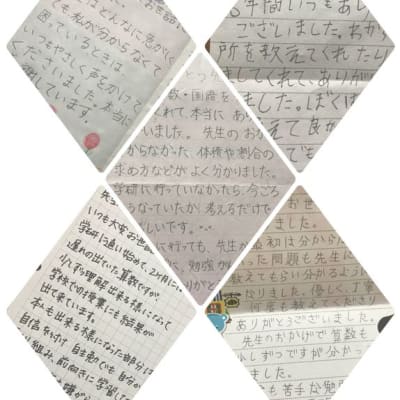 ても私が分からなくて
困っているときは
いつもやさしく声をかけて
くださいました。本当に
謝しています。
年間いつもあり
ございました。わか
所を教えてくれたり
してくれて、ありが
ました。ぼくは
えて良か
でも
数・国語を
くれて本当に あり
いました。先生のおか
からなかった、体積や割合の
求め方などがよく分かりました。
学研に行っていなかたら、今ごろ
うなっていたか 考えるだけで
しいです。
に行っても、先生か
勉強か
先生
いつも大変お世
学研に通い始めて、2ヶ月に
遅れの出ていた算数ですが、
少しずつ理解出来る様になって
学校での授業にも結果が
出て来ています。
本人も出来る様になった部分に
自信を付け 自主勉でも自分か
組み、前向きに学習した
お世
ました。
最初は分からた
った問題も先生に
教えてもらい分かるように
なりました。優しく、丁寧
何度も教えてくださり
ありがとうございました。
先生のおかげで算数も
少しずつですが分かっ
ました。
も苦手な勉